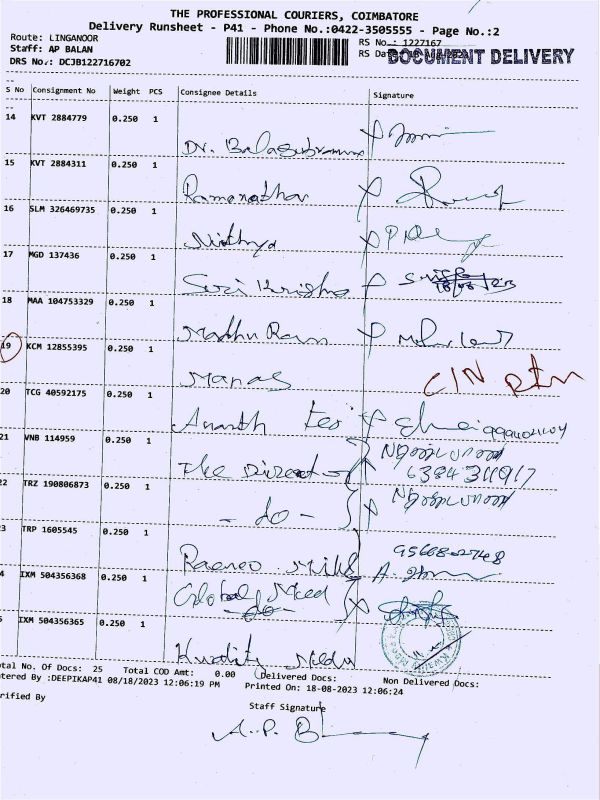 THE PROFESSIONAL COURIERS, COIMBATORE
Delivery Runsheet - P41 - Phone No.:0422-3505555 - Page No.:2
Route: LINGANOOR
Staff: AP BALAN
DRS No.: DCJB122716702
RS No.: 1227167
RS Date:
DOCUMENT DELIVERY
S No Consignment No Weight PCS Consignee Details Signature
14 KVT 2884779 0.250 1
Dr. Balasubramani X
15 KVT 2884311 0.250 1
Ramanathan X
16 SLM 326469735 0.250 1
Nithya X
17 MGD 137436 0.250 1
Suri Krishna
18 MAA 104753329 0.250 1
Madhu Ram
19 KCM 12855395 0.250 1
Manas C/N rtn
20 TCG 40592175 0.250 1
Ananth Tex
21 VNB 114959 0.250 1
The Director
6384311917
22 TRZ 190806873 0.250 1
- do - X
3 TRP 1605545 0.250 1
Mills
4 IXM 504356368 0.250 1
Global Med X
- do -
5 IXM 504356365 0.250 1
otal No. Of Docs: 25 Total COD Amt: 0.00 Delivered Docs: Non Delivered Docs:
tered By :DEEPIKAP41 08/18/2023 12:06:19 PM Printed On: 18-08-2023 12:06:24
rified By
Staff Signature
A.P. B